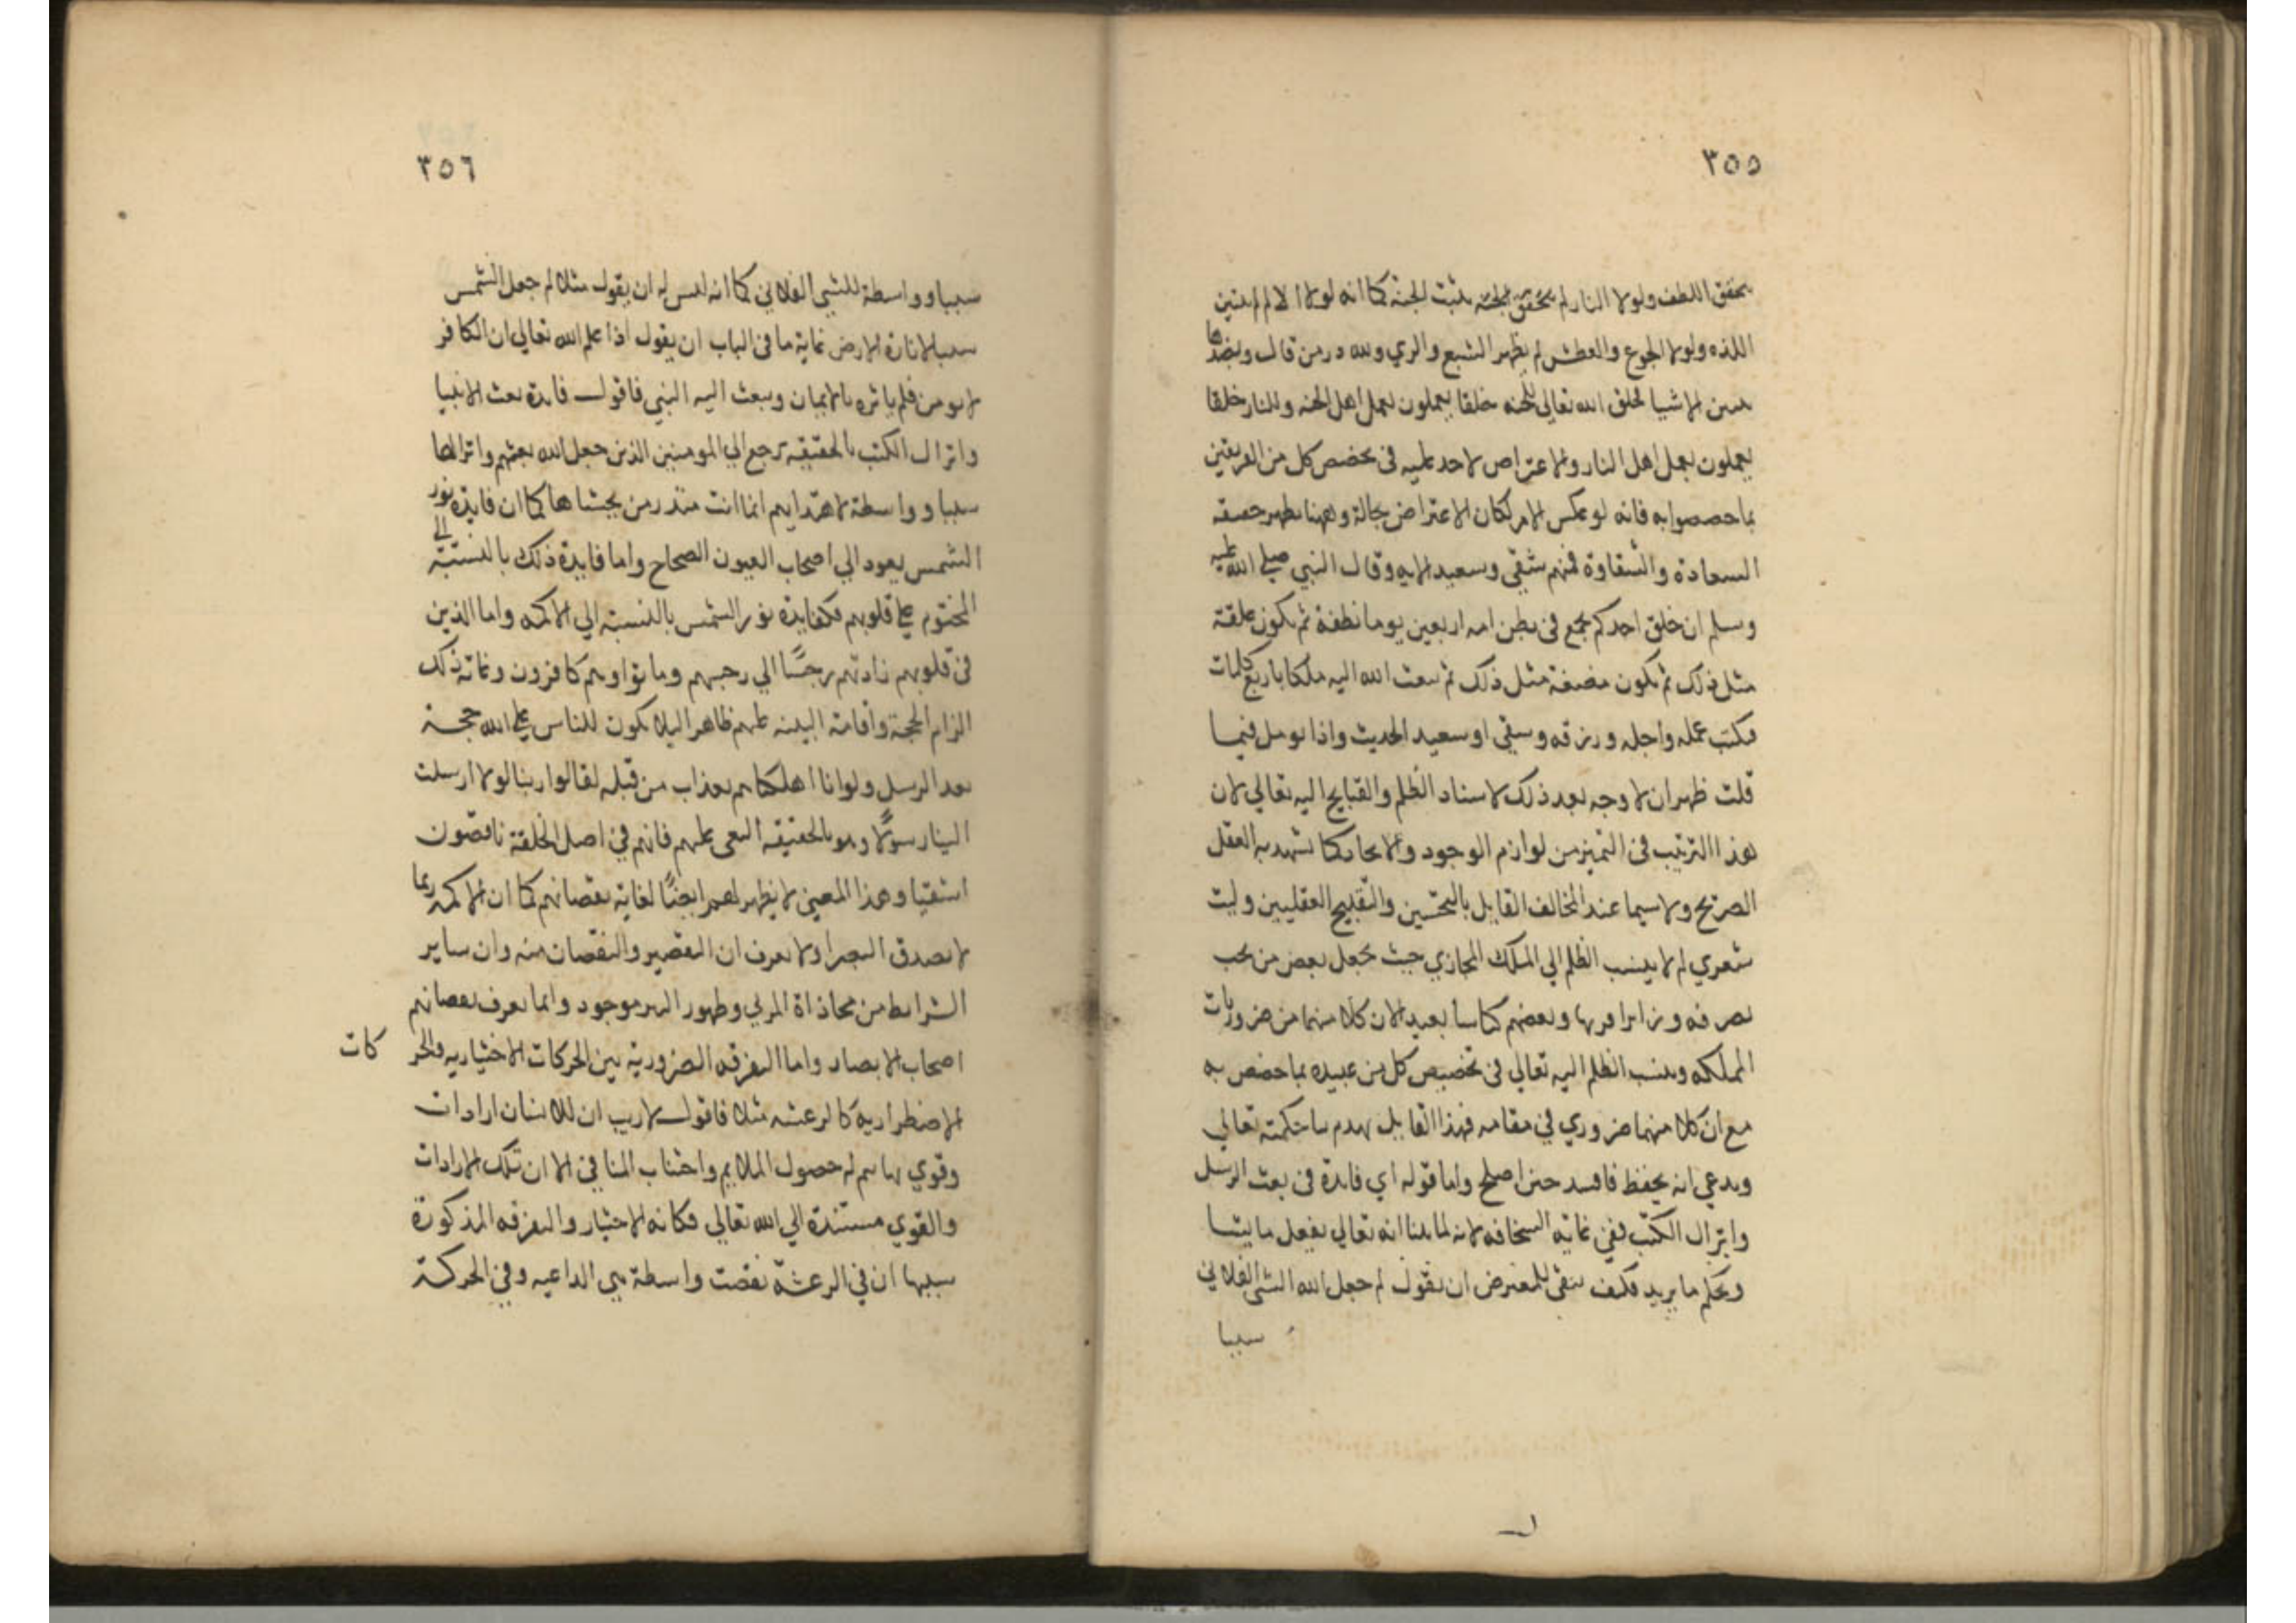 ٣٥٥
يحقق اللطف ولولا النار لم يتحقق الجنة يثبت الجنة كما انه لولا الالم لم يتبين
اللذه ولولا الجوع والعطش لم يظهر الشبع والري ولله در من قال وبضدها
تتبين الاشيا فخلق الله تعالي للجنه خلقا يعملون بعمل اهل الجنه وللنار خلقا
يعملون بعمل اهل النار ولا اعتراض لاحد عليه في تخصص كل من الفريقين
بما خصصوا به فانه لو عكس الامر لكان الاعتراض بحالة وههنا يظهر حقيقة
السعادة والشقاوة فمنهم شقي وسعيد الايه وقال النبي صلي الله عليه
وسلم ان خلق احدكم يجمع في بطن امه اربعين يوما نطفة ثم يكون علقة
مثل ذلك ثم يكون مضغة مثل ذلك ثم يبعث الله اليه ملكا باربع كلمات
فكتب عمله واجله ورزقه وشقي او سعيد الحديث واذا تومل فيما
قلت ظهر ان لا وجه بعد ذلك لاسناد الظلم والقبايح اليه تعالي لان
هذا الترتيب في التميز من لوازم الوجود والايجاد كما تشهد به العقل
الصريح ولا سيما عند المخالف القايل بالتحسين والتقبيح العقليين وليت
شعري لم لا ينسب الظلم الي الملك المجازي حيث يجعل بعض من تحت
تصرفه وزيرا قريبا وبعضهم كناسا بعيدا لان كلا منهما من ضروريات
المملكه وينسب الظلم اليه تعالي في تخصيص كل من عبيده بما خصص به
مع ان كلا منهما ضروري في مقامه فهذا القايل يهدم بنا حكمته تعالي
ويدعي انه يحفظ فافسد حين اصلح واما قوله اي فايدة في بعث الرسل
وانزال الكتب ففي غاية السخافه لانه لما بينا انه تعالي يفعل ما يشا
ويحكم ما يريد فكيف يبقي للمعترض ان يقول لم جعل الله الشي الفلاني
سببا
٣٥٦
سببا وواسطة للشي الفلاني كما انه ليس له ان يقول مثلا لم جعل الشمس
سببا لانارة الارض غاية ما في الباب ان يقول اذا علم الله تعالي ان الكافر
لا يومن فلم يامره بالايمان ويبعث اليه النبي فاقول فايدة بعث الانبيا
وانزال الكتب بالحقيقة ترجع الي المومنين الذين جعل الله بعثهم وانزالها
سببا وواسطة لاهتدايهم انما انت منذر من يخشاها كما ان فايدة نور
الشمس يعود الي اصحاب العيون الصحاح واما فايدة ذلك بالنسبة الي
المختوم علي قلوبهم فكفايدة نور الشمس بالنسبة الي الاكمه واما الذين
في قلوبهم زادتهم رجسًا الي رجسهم وماتوا وهم كافرون وغاية ذلك
الزام الحجة واقامة البينه عليهم ظاهرا ليلا يكون للناس علي الله حجة
بعد الرسل ولو انا اهلكناهم بعذاب من قبله لقالوا ربنا لولا ارسلت
الينا رسولًا وهو بالحقيقه النعي عليهم فانهم في اصل الخلقة ناقصون
اشقيا وهذا المعني لا يظهر لهم ايضًا لغاية نقصانهم كما ان الاكمه ربما
لا يصدق البصرا ولا يعرف ان التقصير والنقصان منه وان ساير
الشرايط من محاذاة المرئي وظهور النير موجود وانما يعرف نقصانهم
اصحاب الابصار واما التفرقه الضرورية بين الحركات الاختياريه والحر كات
الاضطراريه كالرعشه مثلا فاقول لا ريب ان للانسان ارادات
وقوي بها يتم له حصول الملايم واجتناب المنافي الا ان تلك الارادات
والقوي مستندة الي الله تعالي فكانه لا اختيار والتفرقه المذكورة
سببها ان في الرعشة نقصت واسطة هي الداعيه وفي الحركة